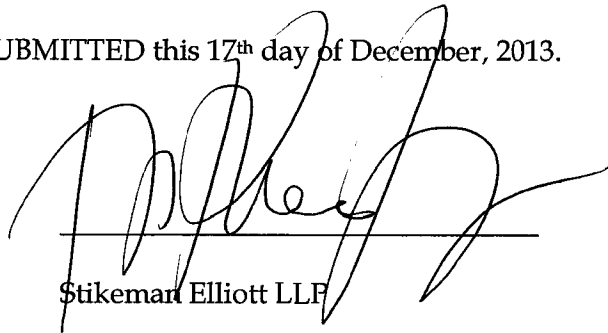 UBMITTED this 17th day of December, 2013.
Stikeman Elliott LLP